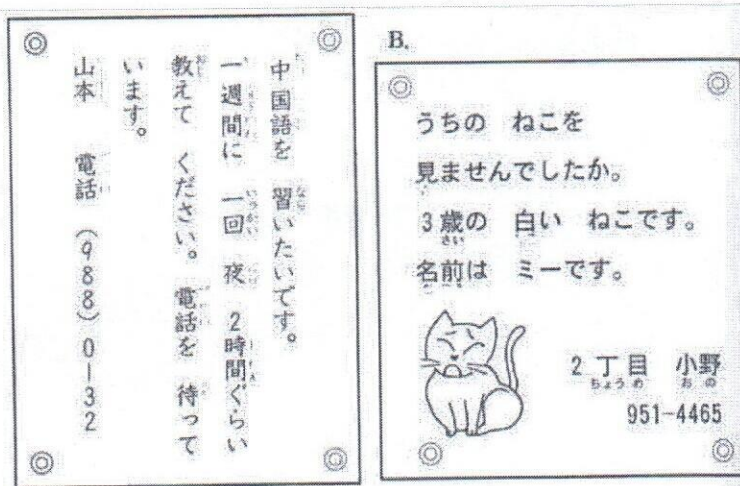 中国語を 習いたいです。
一週間に 一回 夜 2時間ぐらい
教えて ください。電話を 待って
います。
山本 電話 (988) 0-32
B.
うちの ねこを
見ませんでしたか。
3歳の 白い ねこです。
名前は ミーです。
2丁目 小野
951-4465